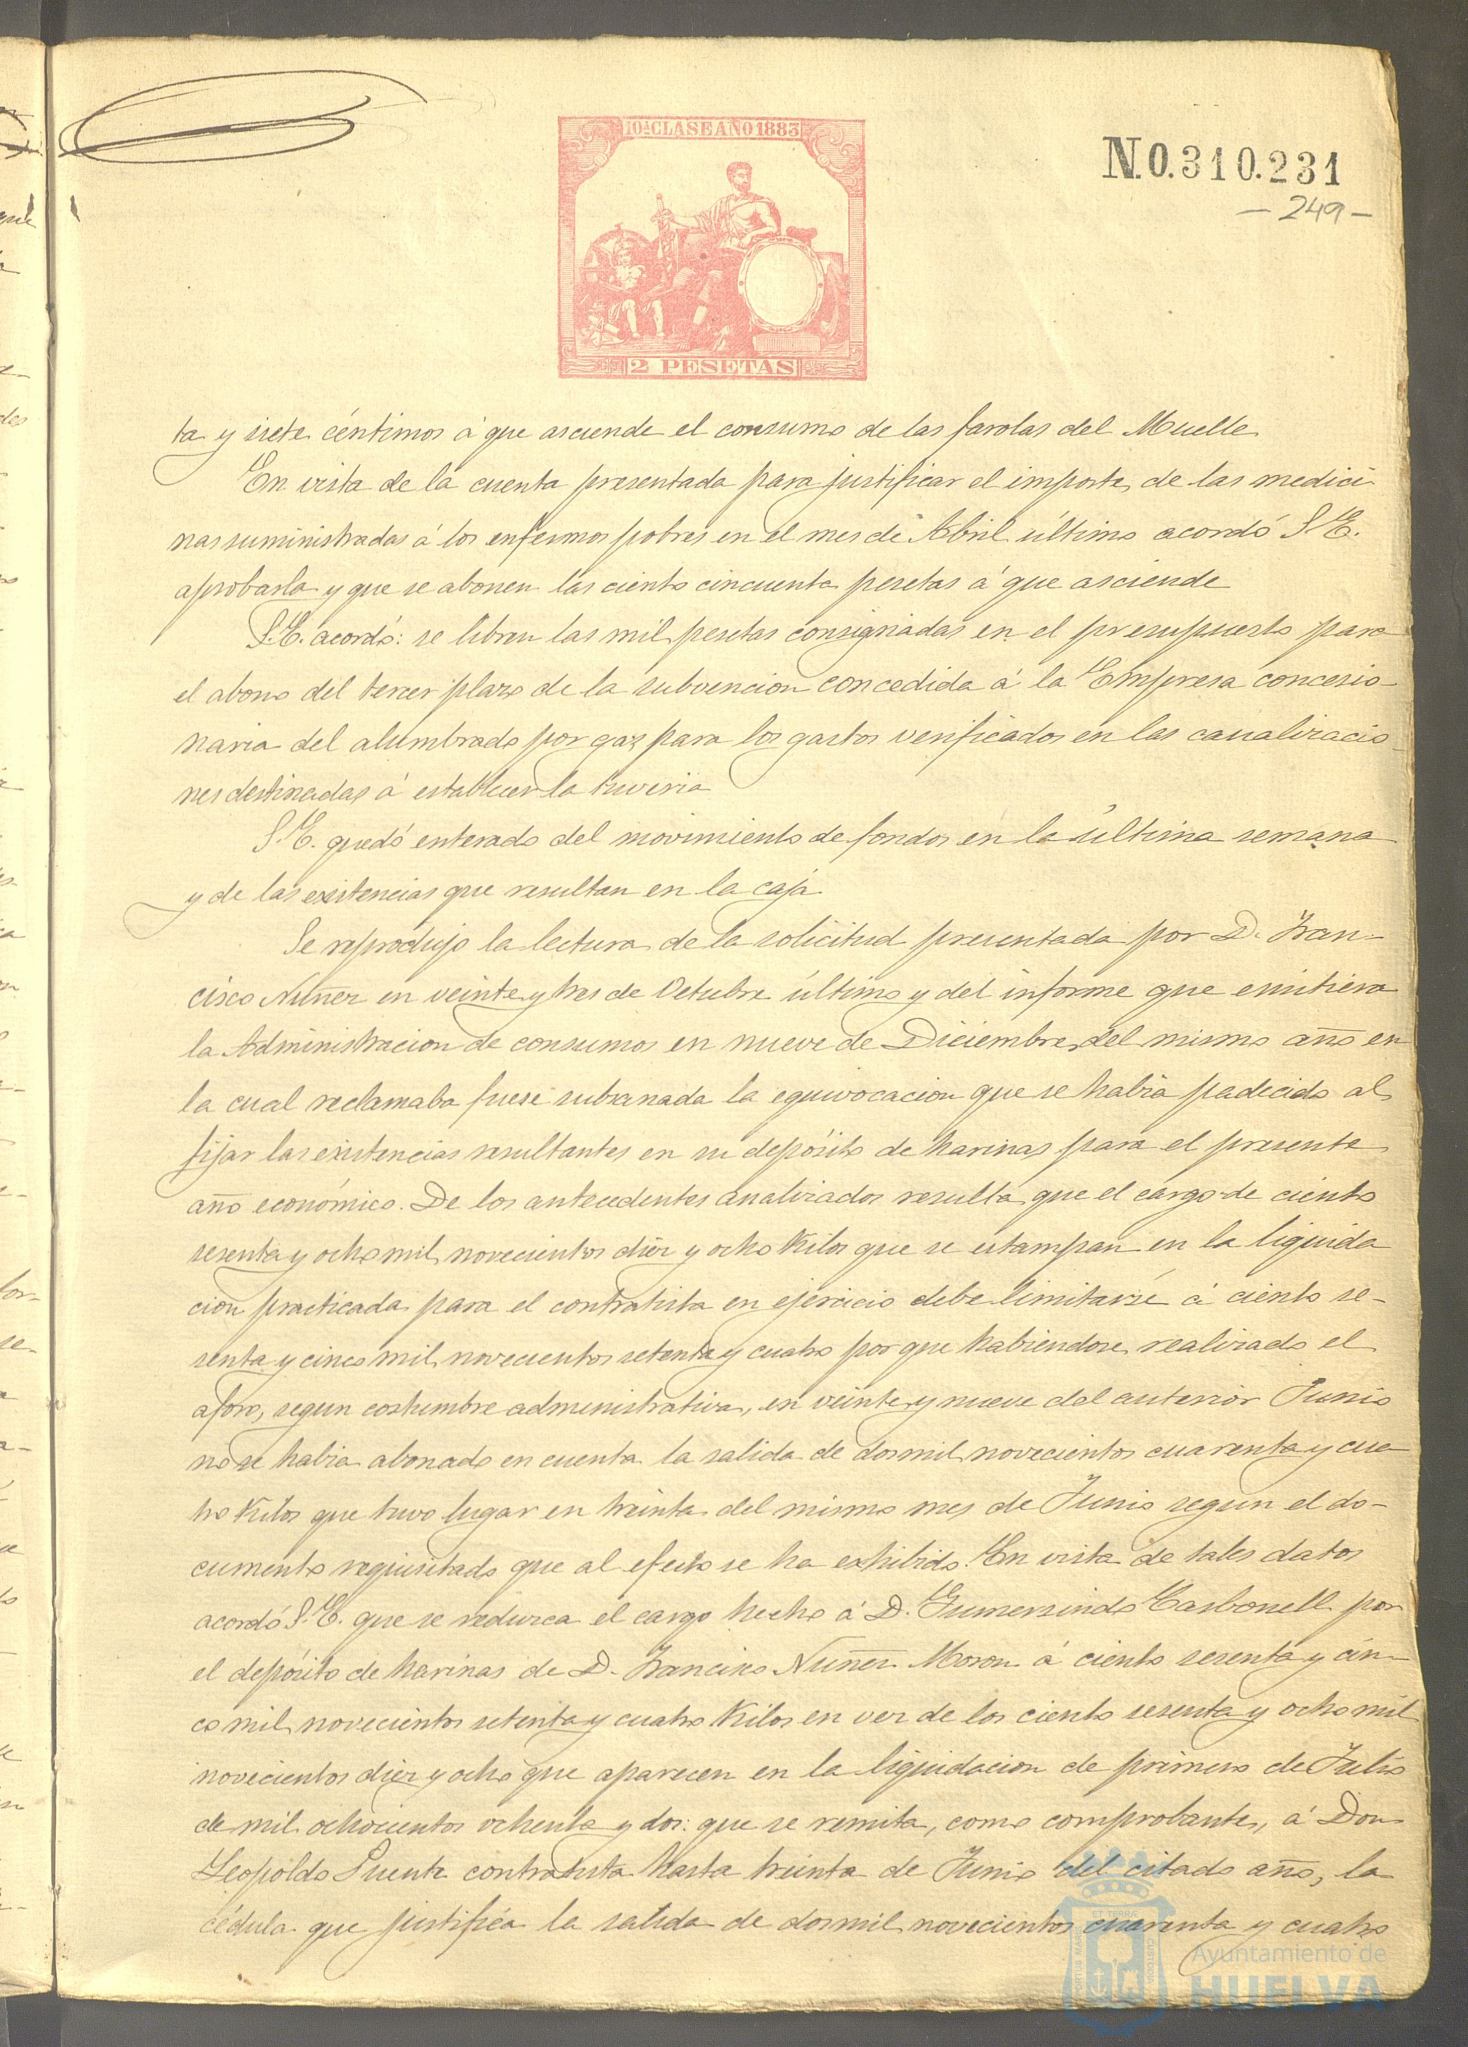 10ª CLASE AÑO 1883
N.0.310.231
- 249 -
2 PESETAS
ta y siete céntimos á que asciende el consumo de las farolas del Muelle
En vista de la cuenta presentada para justificar el importe de las medici
nas suministradas á los enfermos pobres en el mes de Abril último acordó S.E.
aprobarla y que se abonen las ciento cincuenta pesetas á que asciende
S.E. acordó: se libren las mil pesetas consignadas en el presupuesto para
el abono del tercer plazo de la subvencion concedida á la Empresa concesio-
naria del alumbrado por gaz para los gastos verificados en las canalizacio-
nes destinadas á establecer la tuveria
S.E. quedó enterado del movimiento de fondos en la última semana
y de las existencias que resultan en la caja.
Se reprodujo la lectura de la solicitud presentada por D. Fran-
cisco Nuñez en veinte y tres de Octubre último y del informe que emitiera
la Administracion de consumos en nueve de Diciembre del mismo año en
la cual reclamaba fuese subsanada la equivocacion que se habia padecido al
fijar las existencias resultantes en su depósito de harinas para el presente
año económico. De los antecedentes analizados resulta que el cargo de ciento
sesenta y ocho mil novecientos diez y ocho Kilos que se estampan en la liquida
cion practicada para el contratista en ejercicio debe limitarse á ciento se-
senta y cinco mil novecientos setenta y cuatro por que habiendose realizado el
aforo, segun costumbre administrativa, en veinte y nueve del anterior Junio
no se habia abonado en cuenta la salida de dos mil novecientos cuarenta y cua
tro Kilos que tuvo lugar en treinta del mismo mes de Junio segun el do-
cumento requisitado que al efecto se ha exhibido. En vista de tales datos
acordó S.E. que se reduzca el cargo hecho á D. Gumersindo Carbonell por
el depósito de harinas de D. Francisco Nuñez Moron á ciento sesenta y cin-
co mil novecientos setenta y cuatro Kilos en vez de los ciento sesenta y ocho mil
novecientos diez y ocho que aparecen en la liquidacion de primero de Julio
de mil ochocientos ochenta y dos: que se remita, como comprobante, á Don
Leopoldo Puente contratista hasta treinta de Junio del citado año, la
cédula que justifica la salida de dos mil novecientos cuarenta y cuatro
Ayuntamiento de
HUELVA